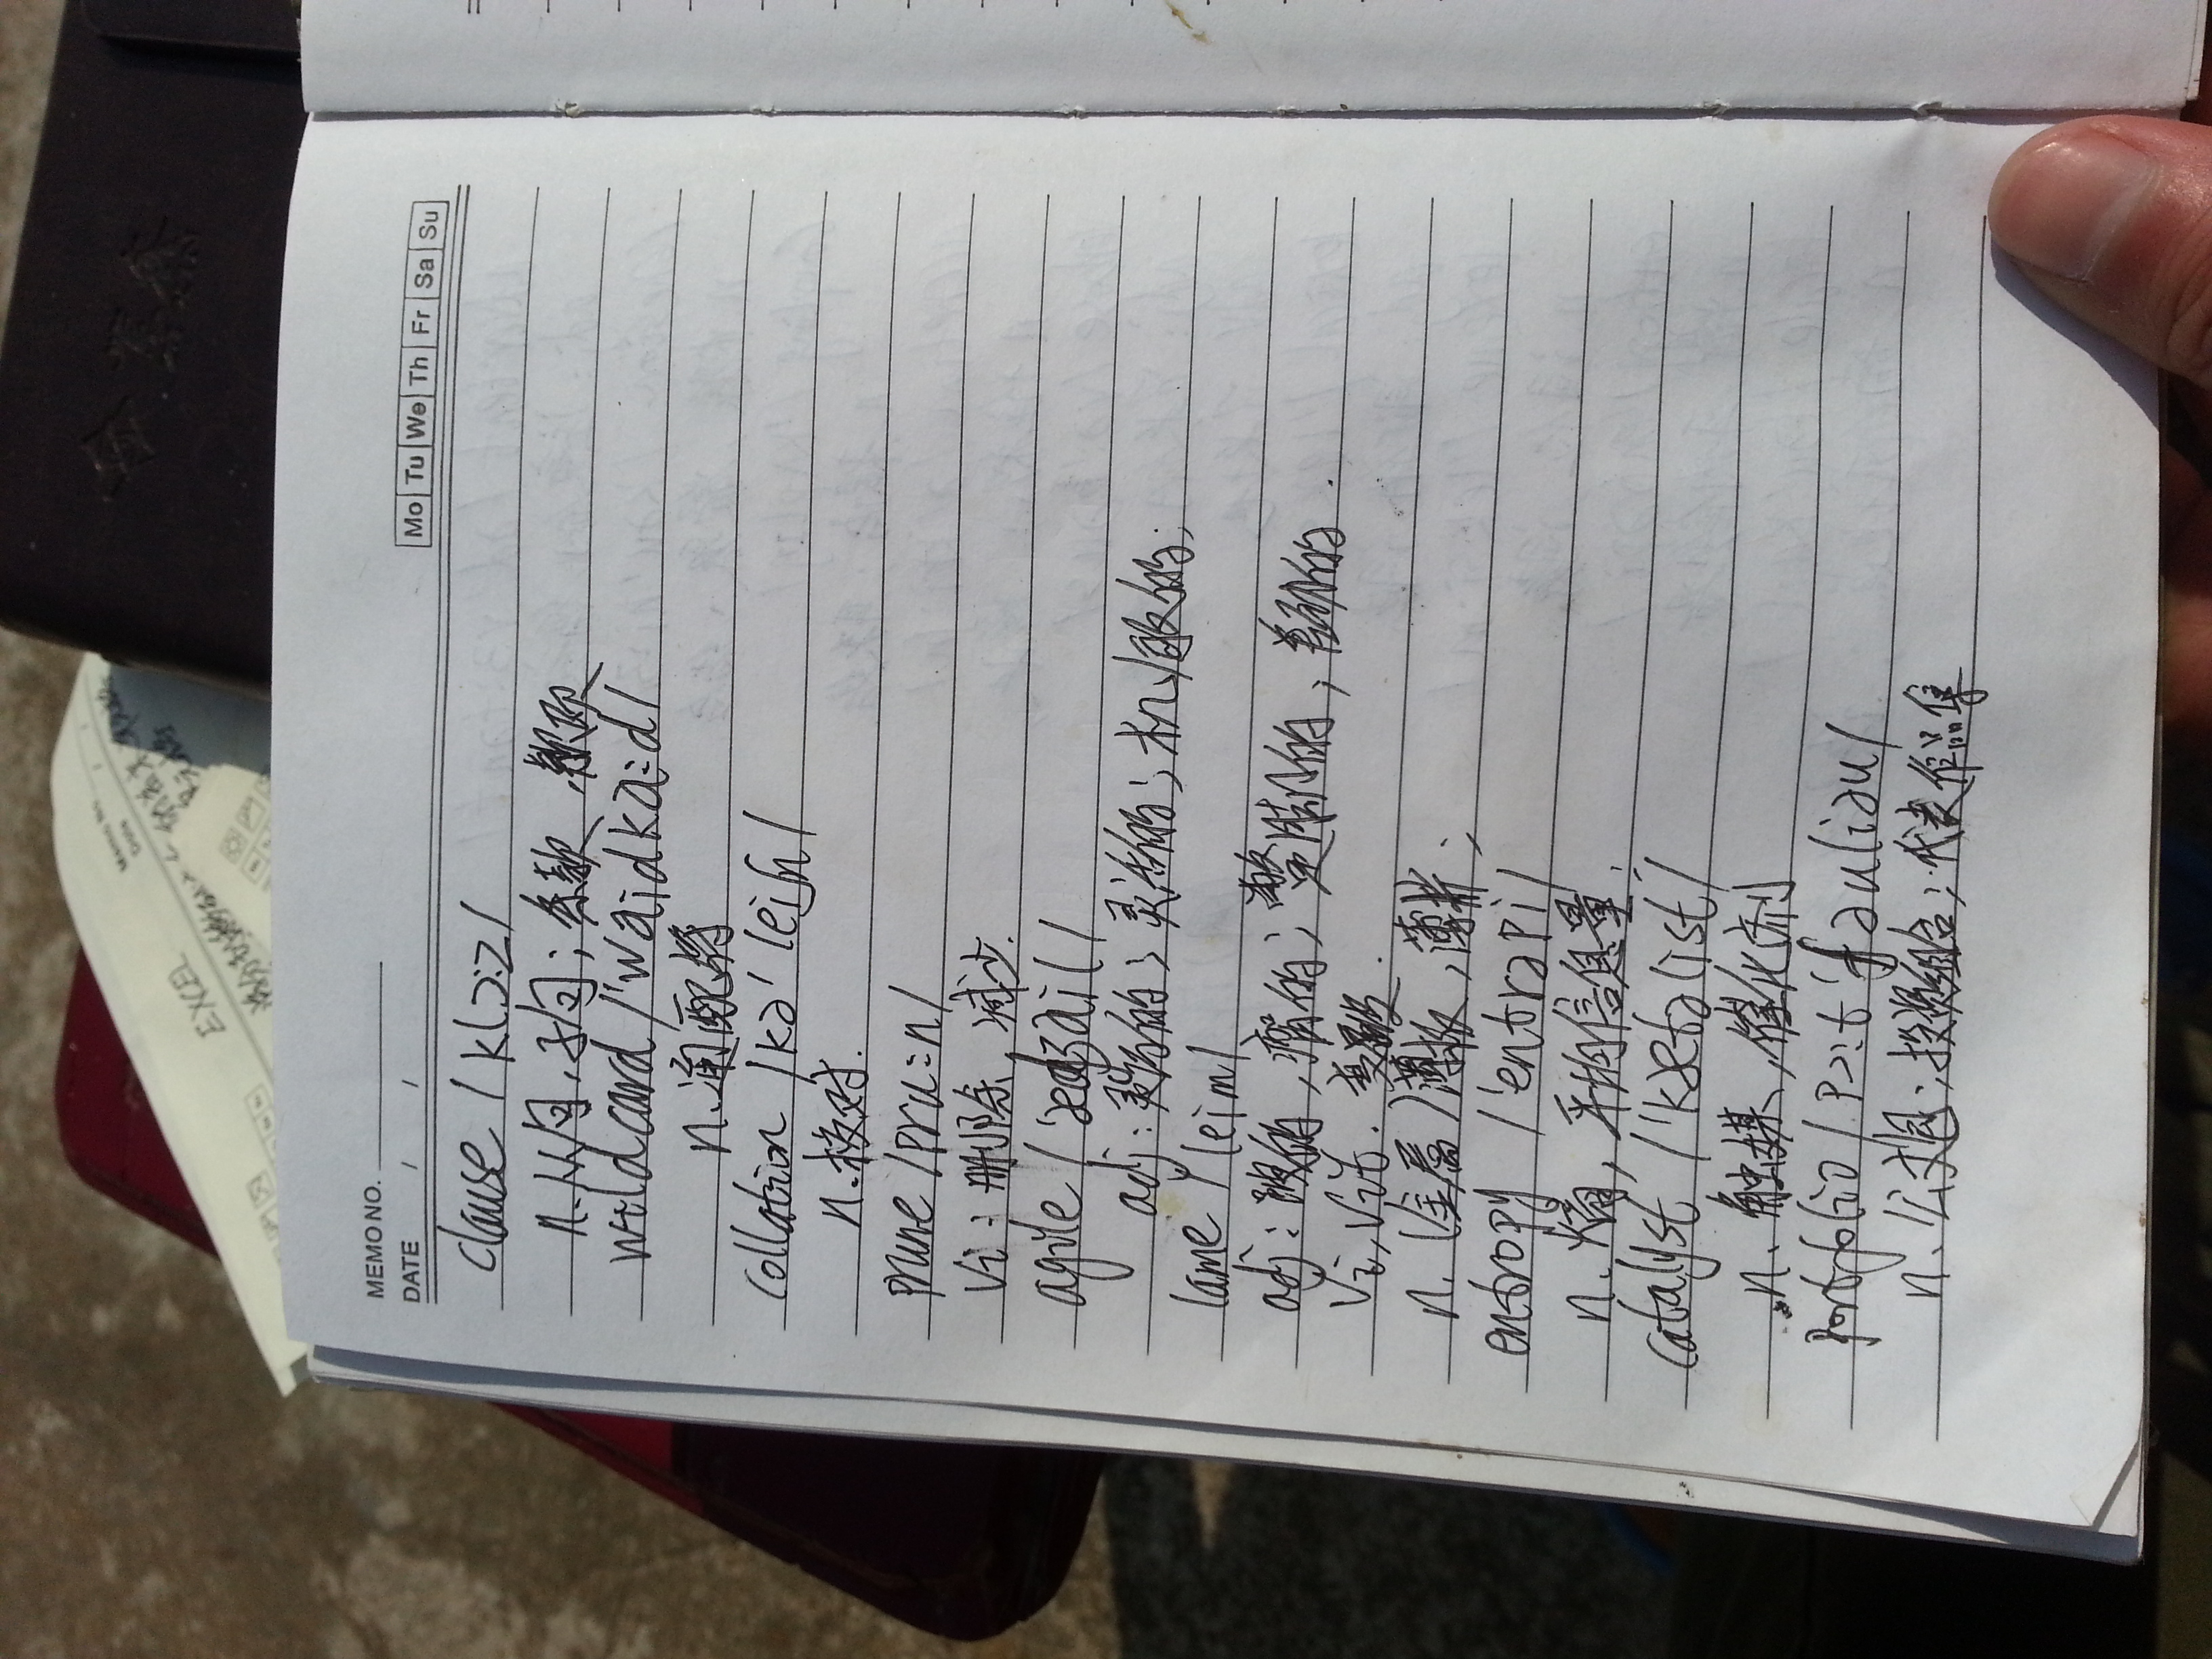 EXCEL
Memo No.
Date / /
MEMO NO.
DATE / /
Mo Tu We Th Fr Sa Su
clause /klɔ:z/
n. 从句, 子句; 条款, 款项
wildcard /'waidka:d/
n. 通配符
collation /kə'leiʃn/
n. 核对.
prune /pru:n/
vi: 删除, 减少.
agile /'ædʒail/
adj: 灵巧的; 灵活的; 机敏的;
lame /leim/
adj: 跛的, 瘸的; 蹩脚的, 差劲的.
vi, vit. 变跛.
n. (金属)薄板, 薄片;
entropy /'entrəpi/
n. 熵, 平均信息量;
catalyst /'kætəlist/
n. 触媒, 催化剂
portfolio /pɔ:t'fəuliəu/
n. 公文包; 投资组合; 代表作品集